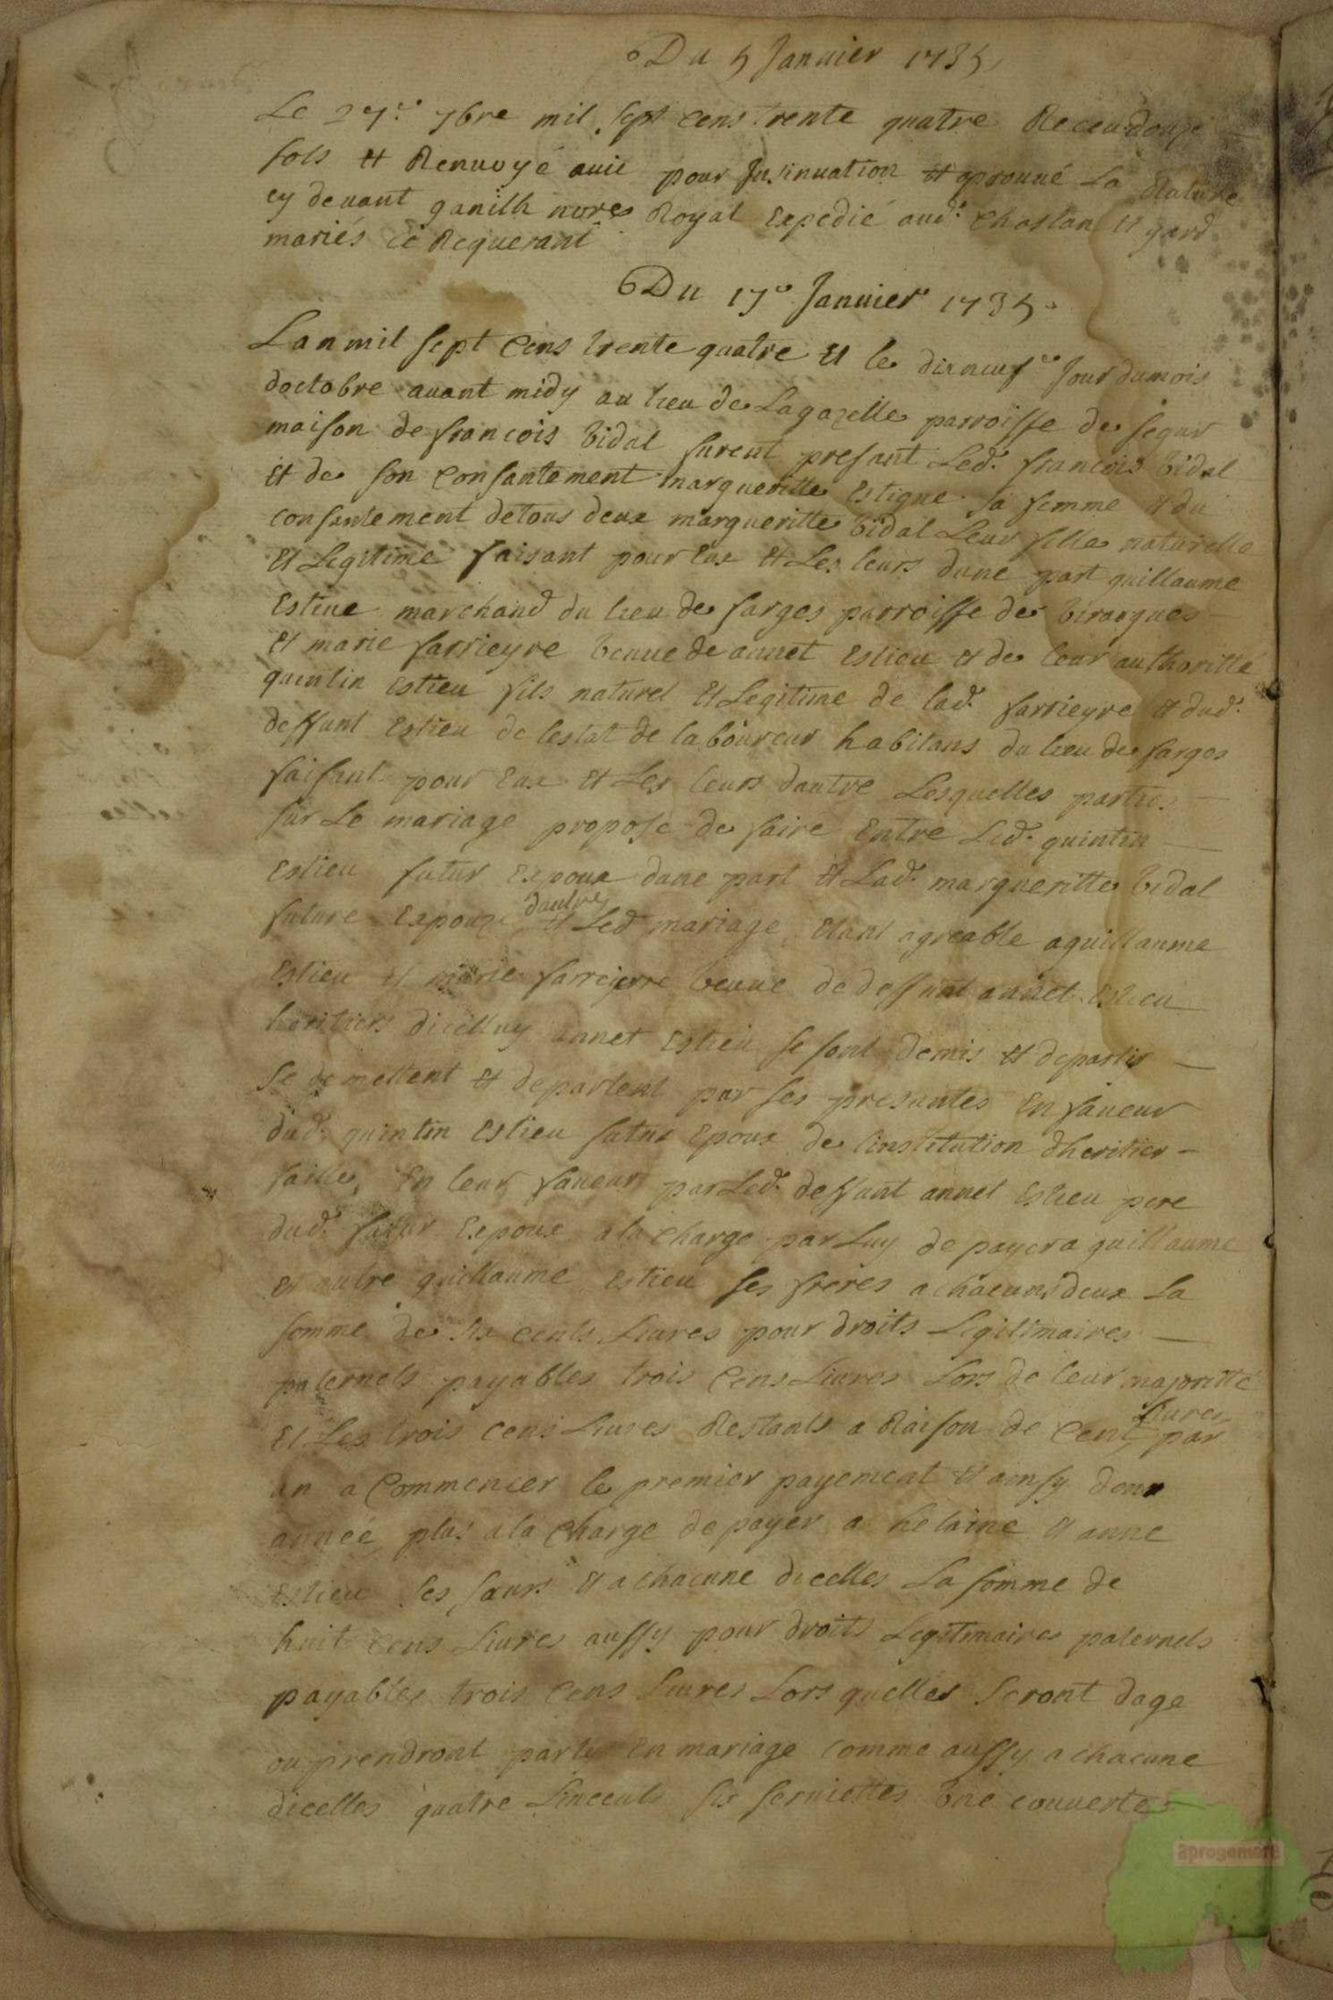 Du 5 Janvier 1735
Le 27e 7bre mil sept cens trente quatre Receu douze
sols et Renvoyé pour Insinuation et aprouvé La Rature
cy devant ganilh nore Royal Expedié aud. Chastan et gard
mariés ce Requerant
Du 17e Janvier 1735
Lan mil sept cens trente quatre et le dixneufe Jour du mois
doctobre avant midy au lieu de Lagazelle parroisse de segur
maison de francois bidal furent presant Led. francois bidal
et de son consantement margueritte Estigue sa femme et du
consantement de tous deux margueritte bidal Leur fille naturelle
et Legitime faisant pour Eux et Les leurs dune part guillaume
Estieu marchand du lieu de farges parroisse de
et marie farrieyre beuve de annet Estieu et de leur authoritté
quintin Estieu fils naturel et Legitime de lad. farrieyre et dud.
deffunt Estieu de lestat de laboureur habitans du lieu de farges
faisant pour Eux et Les leurs dautre Lesquelles parties
sur Le mariage propose de faire Entre Led. quintin
Estieu futur Expoux dune part et Lad. margueritte bidal
future Expouze dautre et Led mariage Etant agreable a guillaume
Estieu et marie farreyre beuve de deffunt annet Estieu
heritiers dicelluy annet Estieu se sont demis et departis
se demettent et departent par ses presantes En faveur
dud. quintin Estieu futur Epoux de linstitution dheritier
faitte En leur faveur par Led. deffunt annet Estieu pere
dud. futur Expoux a la charge par Luy de payer a guillaume
et autre guillaume Estieu ses freres a chacuns deux La
somme de six cents Livres pour droits Legitimaires
paternels payables trois Cens Livres Lors de leur majoritté
et Les trois cens Livres Restants a Raison de Cent Livres par
an a Commencer le premier payement et ainsy
année plus a la Charge de payer a helaine et anne
Estieu ses sœurs et a chacune dicelles La somme de
huit cens Livres aussy pour droits Legitimaires paternels
payables trois Cens Livres Lors quelles seront dage
ou prendront party En mariage comme aussy a chacune
dicelles quatre Linceuls six serviettes bne couverte
aprogemere